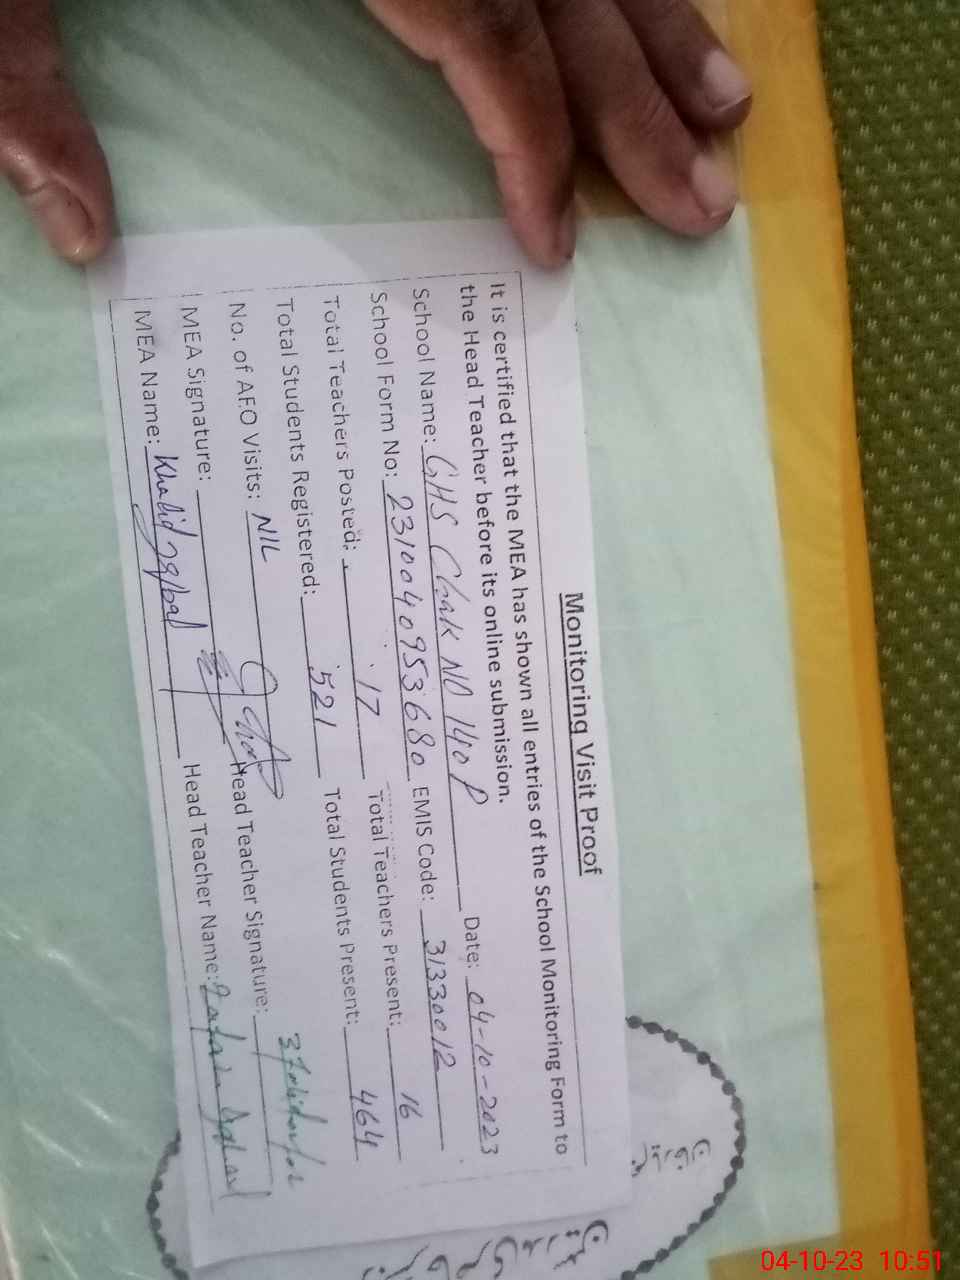 Monitoring Visit Proof
It is certified that the MEA has shown all entries of the School Monitoring Form to
the Head Teacher before its online submission.
School Name: GHS Chak NO 140 P Date: 04-10-2023
School Form No: 2310040953680 EMIS Code: 31330012
Total Teachers Posted: 17 Total Teachers Present: 16
Total Students Registered: 521 Total Students Present: 464
No. of AEO Visits: NIL
MEA Signature: Head Teacher Signature:
MEA Name: Khalid Iqbal Head Teacher Name:
04-10-23 10:51